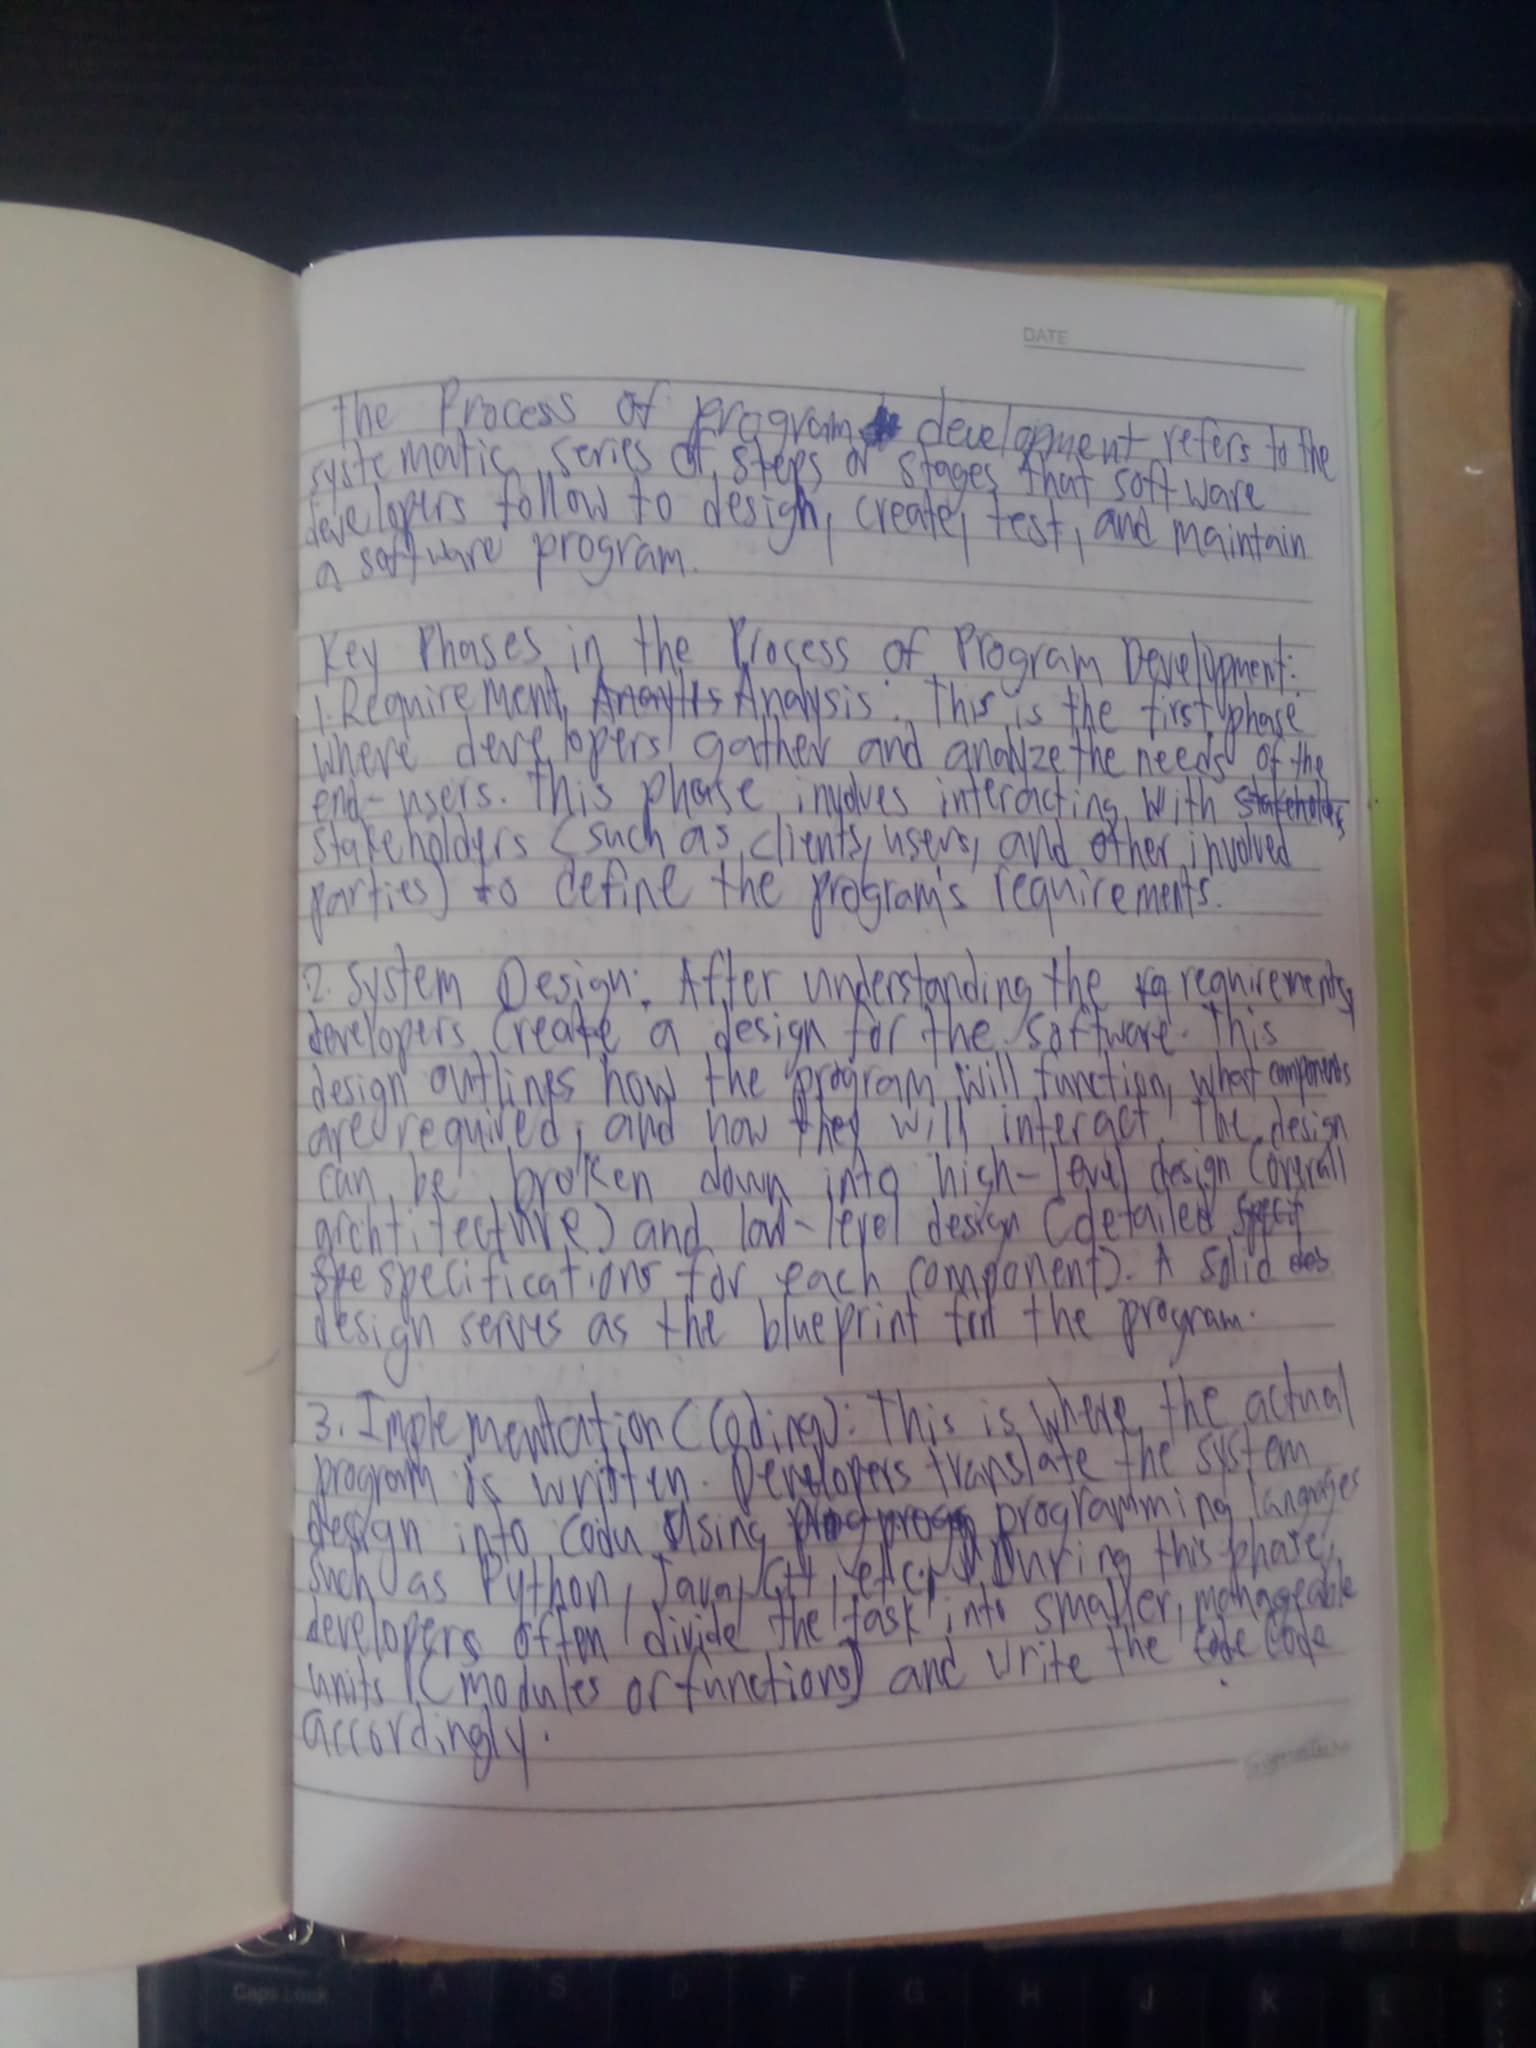 DATE
the Process of program development refers to the
systematic series of steps or stages that software
developers follow to design, create, test, and maintain
a software program.
Key Phases in the Process of Program Development:
1. Requirement Analysis: This is the first phase
where developers gather and analyze the needs of the
end-users. This phase involves interacting with stakeholders
stakeholders (such as clients, users, and other involved
parties) to define the program's requirements.
2. System Design: After understanding the rq requirements,
developers create a design for the software. This
design outlines how the program will function, what components
are required, and how they will interact. The design
can be broken down into high-level design (overall
archtitecture) and low-level design (detailed specif
spe specifications for each component). A solid des
design serves as the blueprint for the program.
3. Implementation (Coding): This is where the actual
program is written. Developers translate the system
design into code using programming languages
such as Python, Java, C++, etc. During this phase,
developers often divide the task into smaller, manageable
units (modules or functions) and write the code code
accordingly.
Caps Lock
A S D F G H J K L